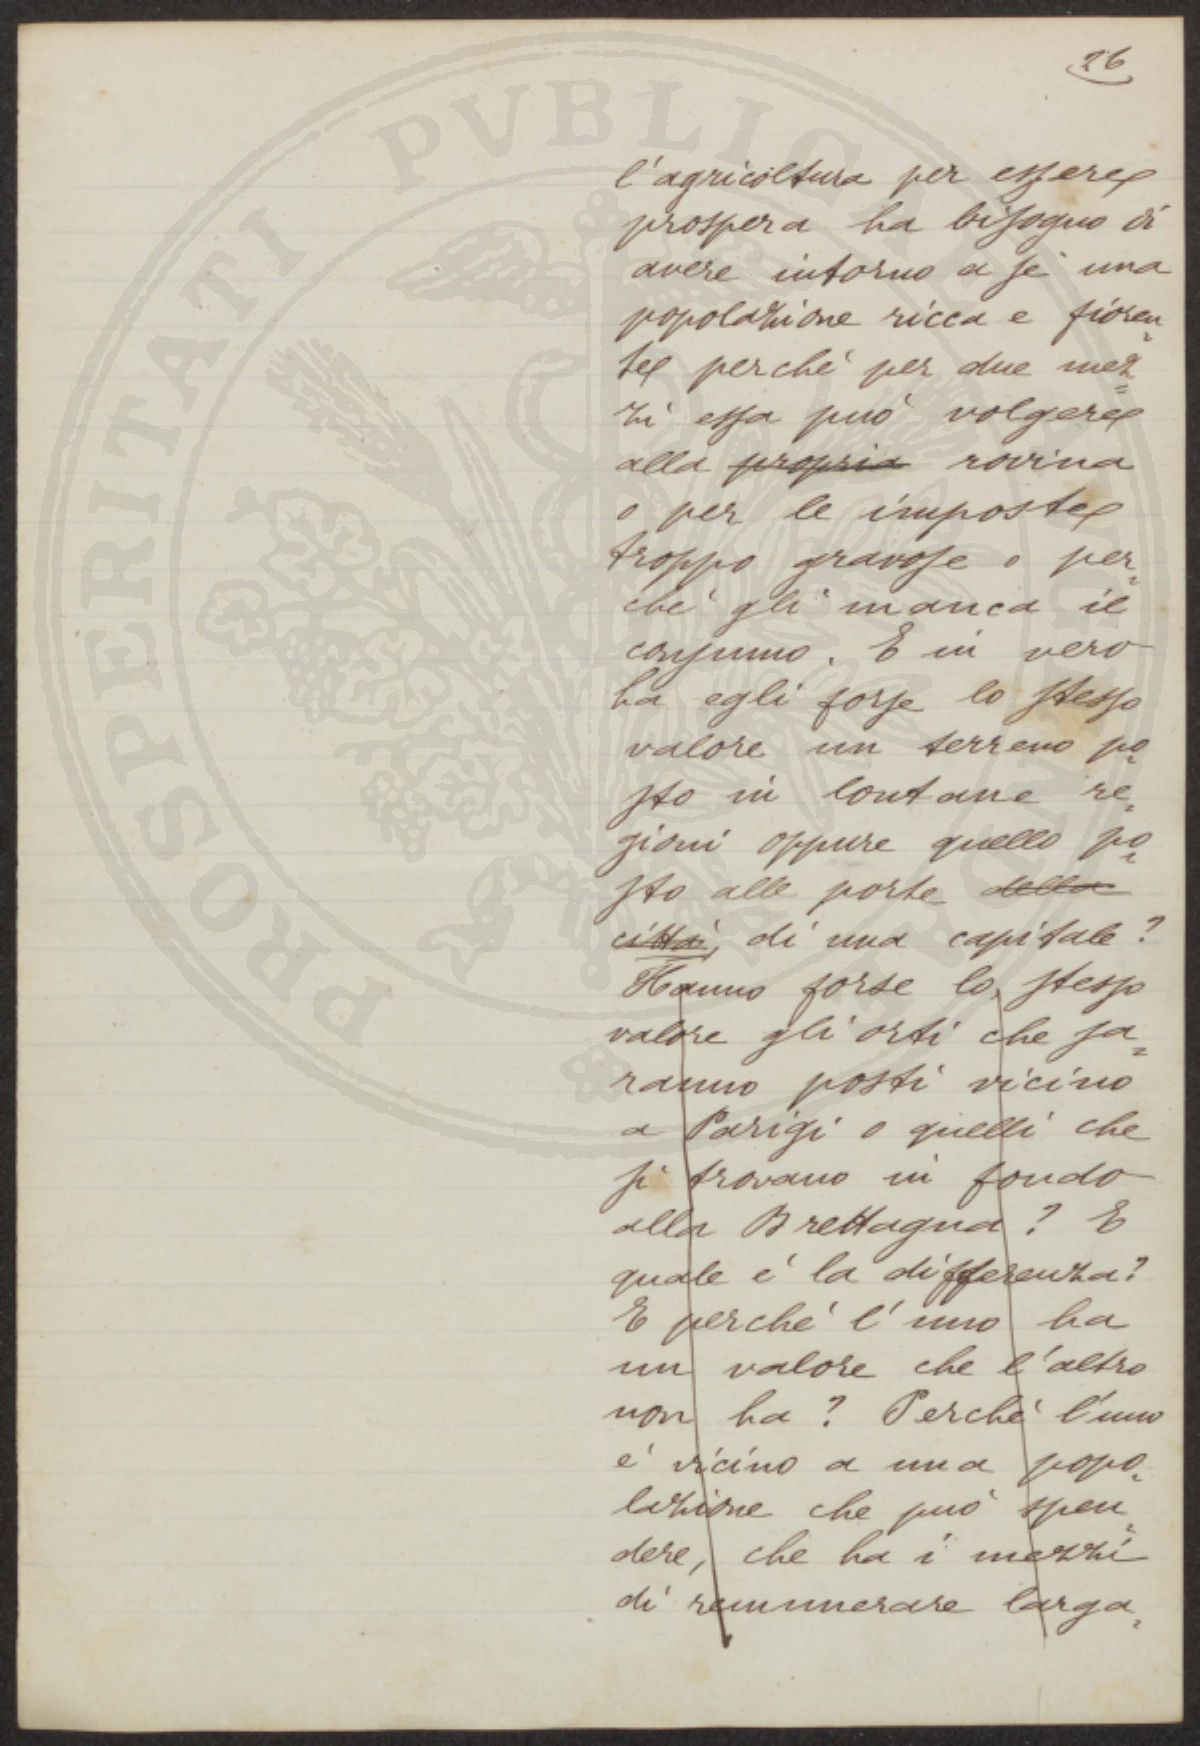 26
l'agricoltura per essere
prospera ha bisogno di
avere intorno a sé una
popolazione ricca e fioren=
te perché per due mez=
zi essa può volgere
alla propria rovina
o per le imposte
troppo gravose o per=
ché gli manca il
consumo. E in vero
ha egli forse lo stesso
valore un terreno po=
sto in lontane re=
gioni oppure quello po=
sto alle porte della
città, di una capitale?
Hanno forse lo stesso
valore gli orti che sa=
ranno posti vicino
a Parigi o quelli che
si trovano in fondo
alla Brettagna? E
quale é la differenza?
E perché l'uno ha
un valore che l'altro
non ha? Perché l'uno
é vicino a una popo=
lazione che può spen=
dere, che ha i mezzi
di remunerare larga=
PROSPERITATI PVBLICAE